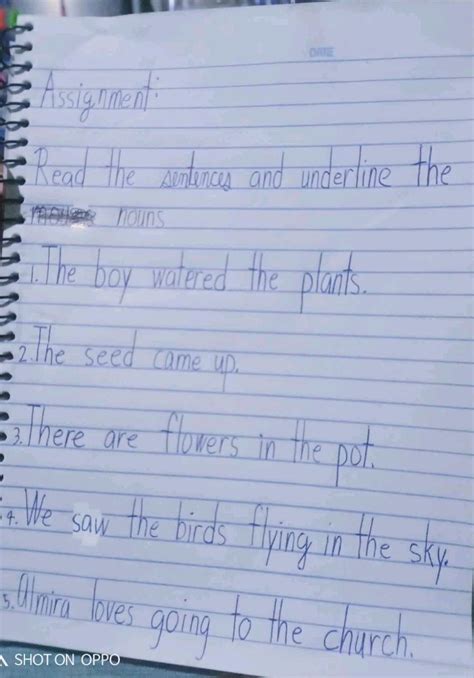 DATE
Assignment:
Read the sentences and underline the
nouns
1. The boy watered the plants.
2. The seed came up.
3. There are flowers in the pot.
4. We saw the birds flying in the sky.
5. Almira loves going to the church.
SHOT ON OPPO